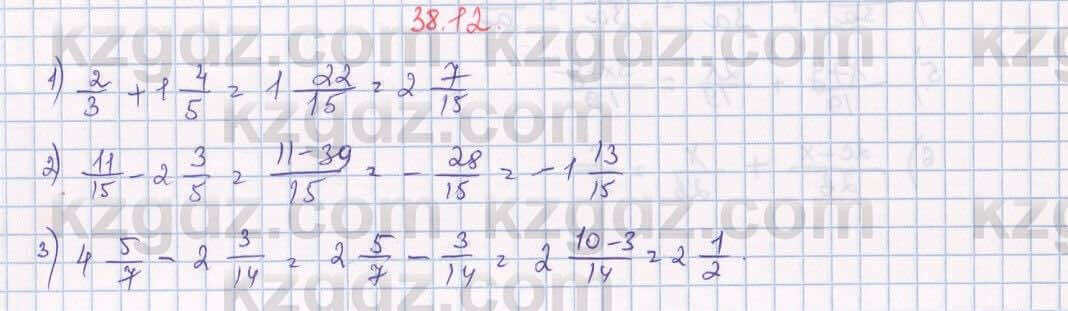 38.12.
1) 2/3 + 1 4/5 = 1 22/15 = 2 7/15
2) 11/15 - 2 3/5 = 11-39/15 = - 28/15 = -1 13/15
3) 4 5/7 - 2 3/14 = 2 5/7 - 3/14 = 2 10-3/14 = 2 1/2.
kzgdz.com kzgdz.com kzg
kzgdz.com
kzgdz.com kzgdz.com kzg
kzgdz.com